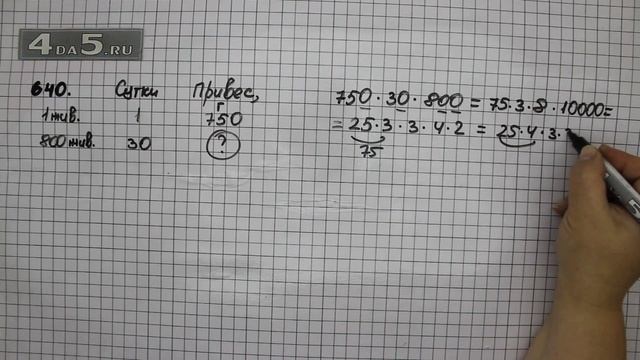 4DA5.RU
640. Сутки Привес, г
1 жив. 1 750
800 жив. 30 ?
750 · 30 · 800 = 75 · 3 · 8 · 10000 =
= 25 · 3 · 3 · 4 · 2 = 25 · 4 · 3 ·
75